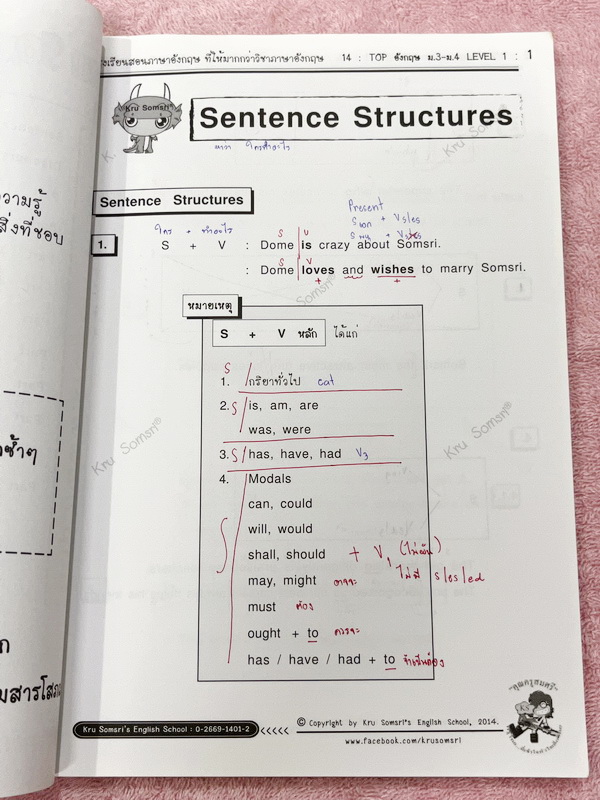 วามรู้
สิ่งที่ชอบ
ซ้ำๆ
ก
มสารโสภ
รงเรียนสอนภาษาอังกฤษ ที่ให้มากกว่าวิชาภาษาอังกฤษ 14 : TOP อังกฤษ ม.3-ม.4 LEVEL 1 : 1
Kru Somsri®
Sentence Structures
ใครทำอะไร
Sentence Structures
Present
ใคร + ทำอะไร
+ Vs/es
S V
1. S + V : Dome is crazy about Somsri.
S V
: Dome loves and wishes to marry Somsri.
+ +
หมายเหตุ
S + V หลัก ได้แก่
S
1. กริยาทั่วไป cat
2. S is, am, are
was, were
3. S has, have, had V3
4. Modals
can, could
will, would
S shall, should + V1 (ไม่ผัน)
may, might อาจจะ ไม่มี s/es/ed
must ต้อง
ought + to ควรจะ
has / have / had + to จำเป็นต้อง
Kru Somsri®
Kru Somsri's English School : 0-2669-1401-2
© Copyright by Kru Somsri's English School, 2014.
www.facebook.com/krusomsri
"คุณครูสมศรี"
KS